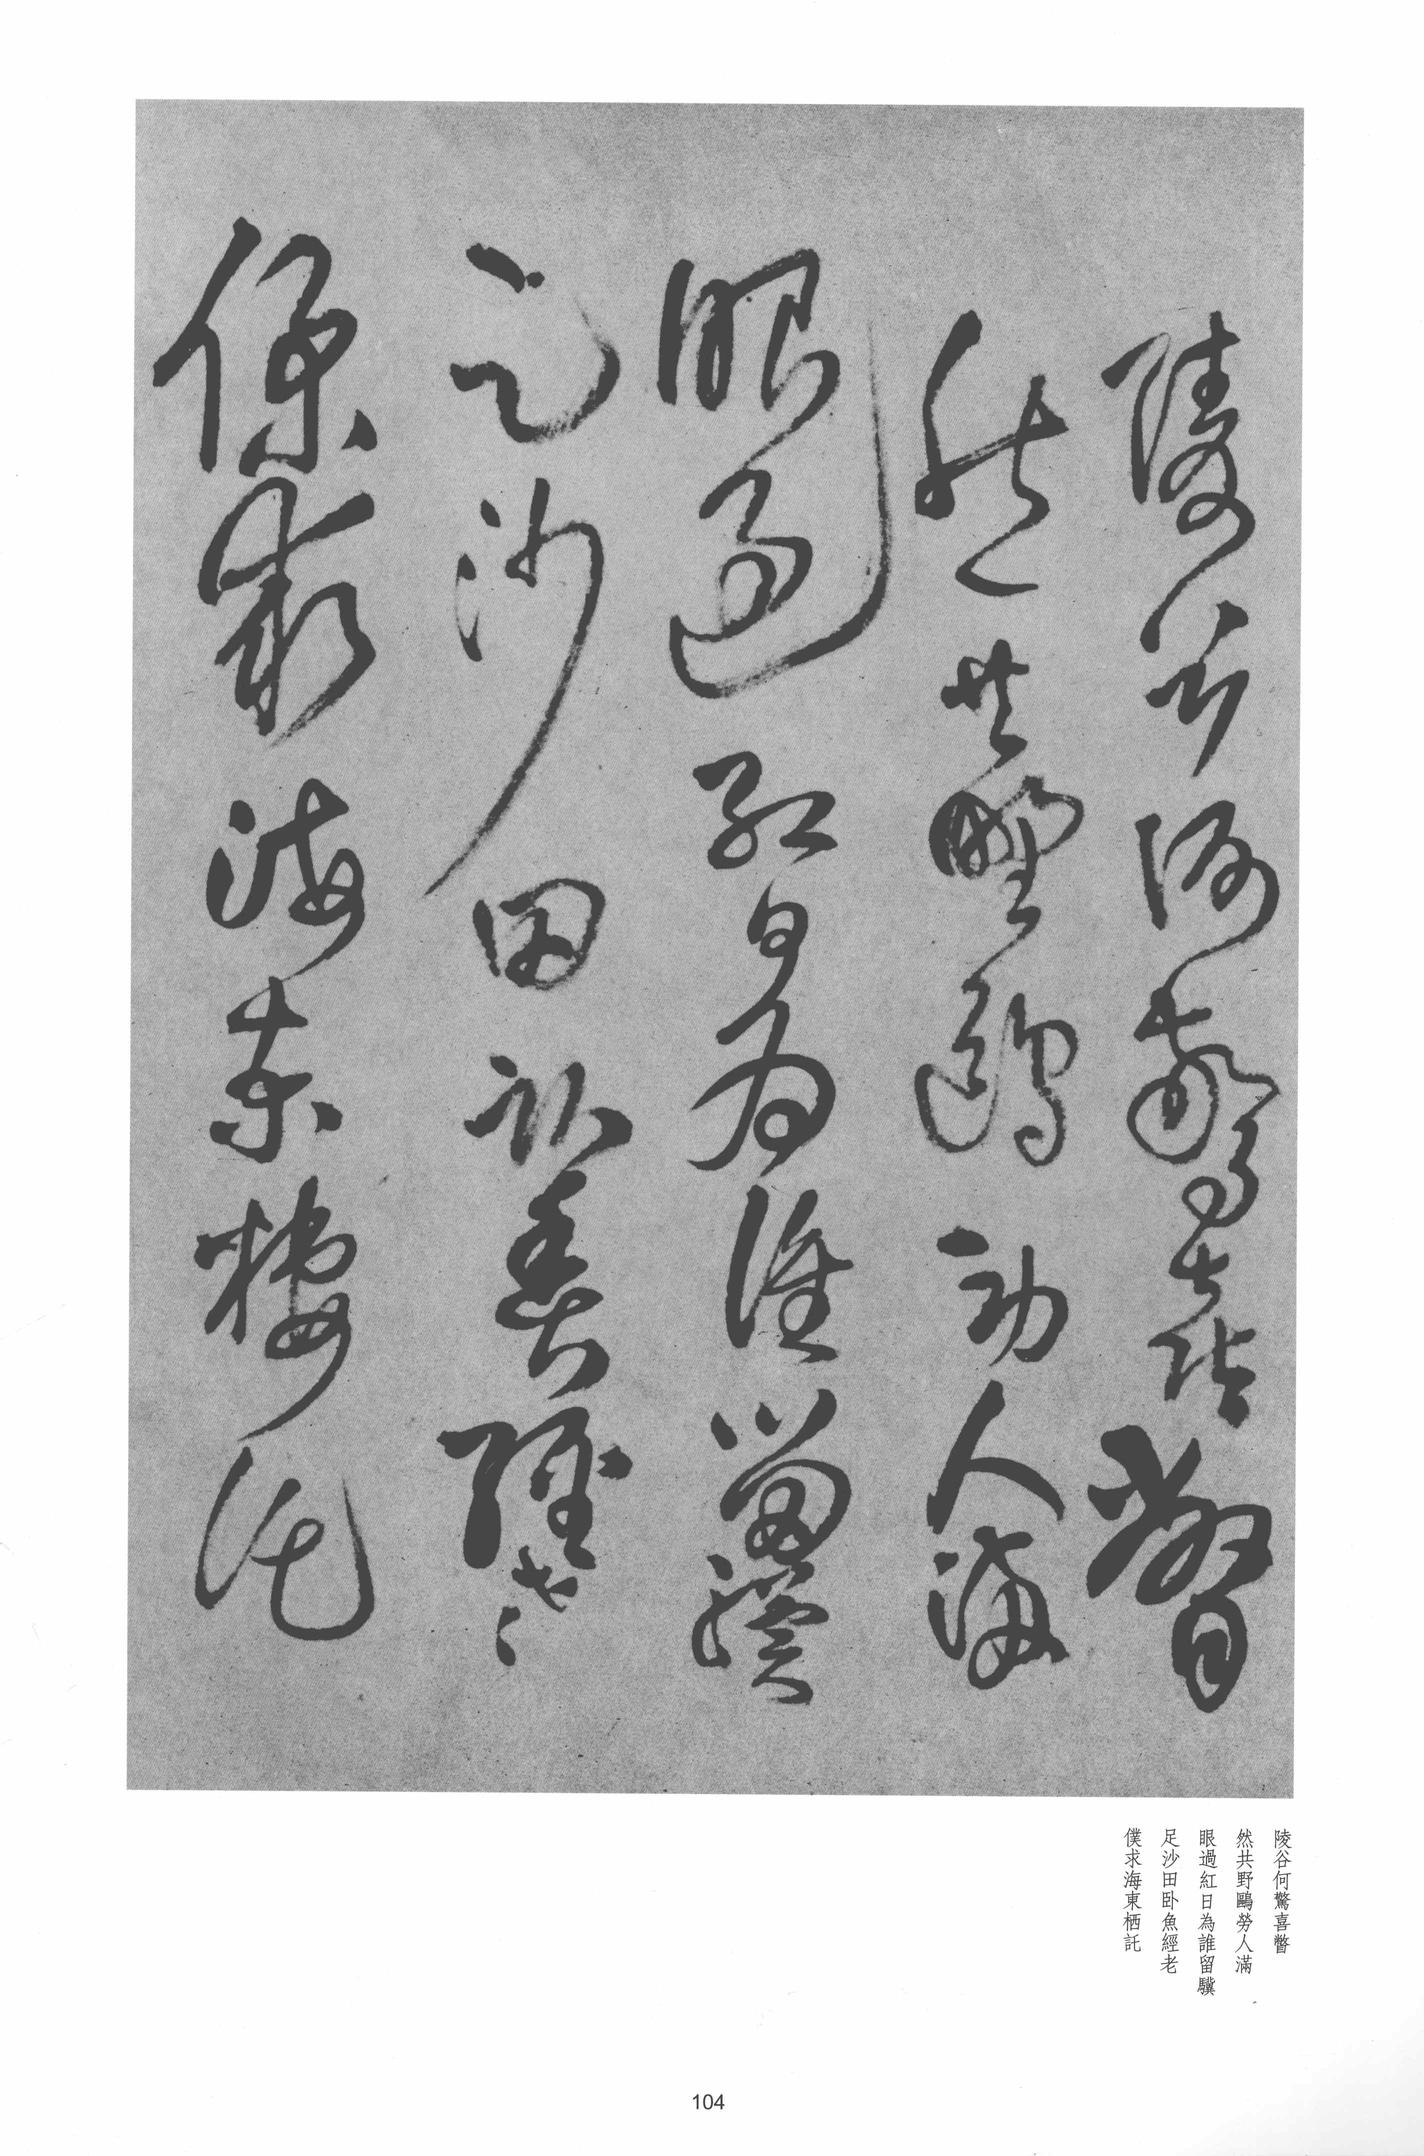 陵谷何驚喜瞥
然共野鷗勞人滿
眼過紅日為誰留驥
足沙田卧魚經老
僕求海東栖託
陵谷何驚喜瞥
然共野鷗勞人滿
眼過紅日為誰留驥
足沙田卧魚經老
僕求海東栖託
104